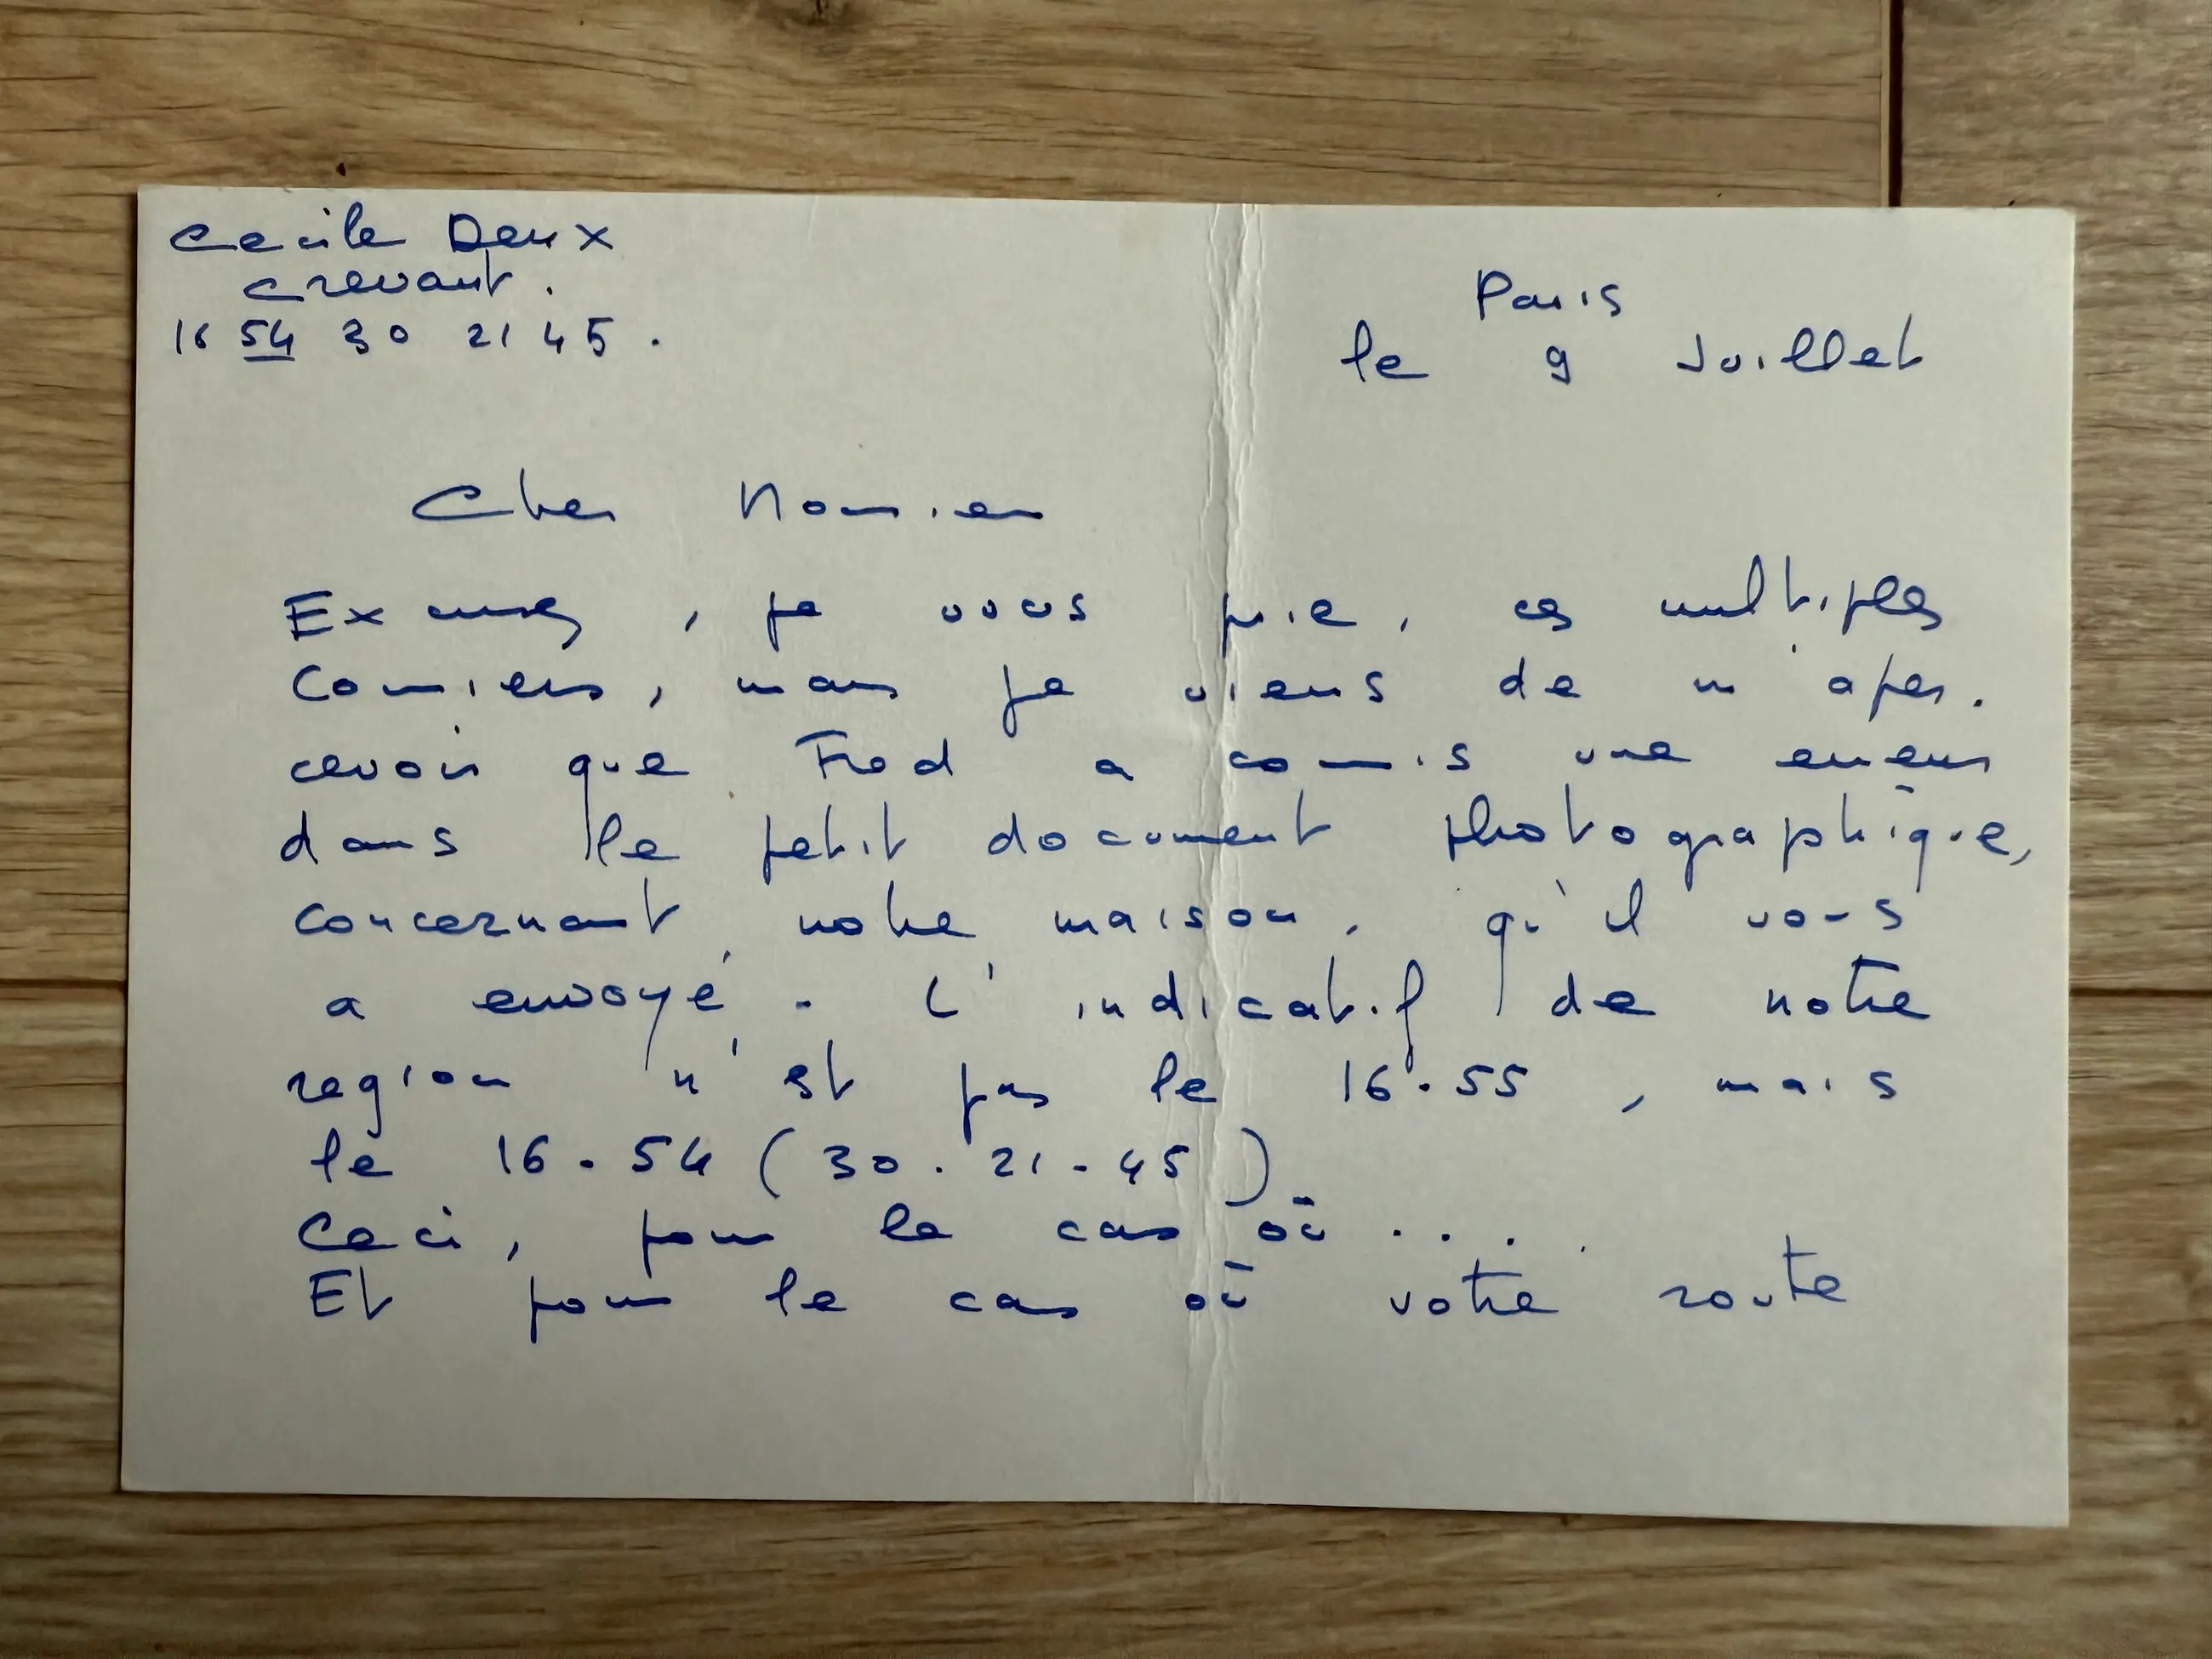 Cecile Deux
Crevant.
16 54 30 21 45.
Paris
le 9 Juillet
Cher
Excusez, je vous prie, ces multiples
Courriers, mais je viens de m'aper-
cevoir que Fred a commis une erreur
dans le petit document photographique,
concernant notre maison, qu'il vous
a envoyé. L'indicatif de notre
region n'est pas le 16.55, mais
le 16.54 (30.21.45).
Ceci, pour le cas où ....
Et pour le cas où votre route